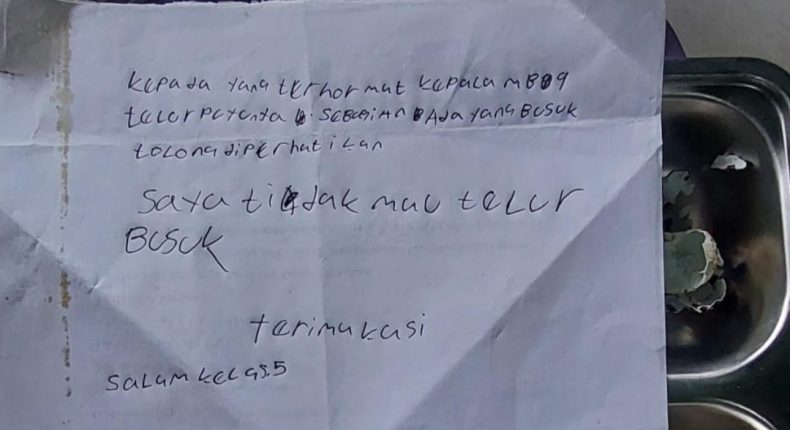 kepada yang terhormat kepala MBG
telornyenta . sebagian ada yang Busuk
tolong diperhatikan
saya tidak mau telur
Busuk
terimakasi
salam kelas.5